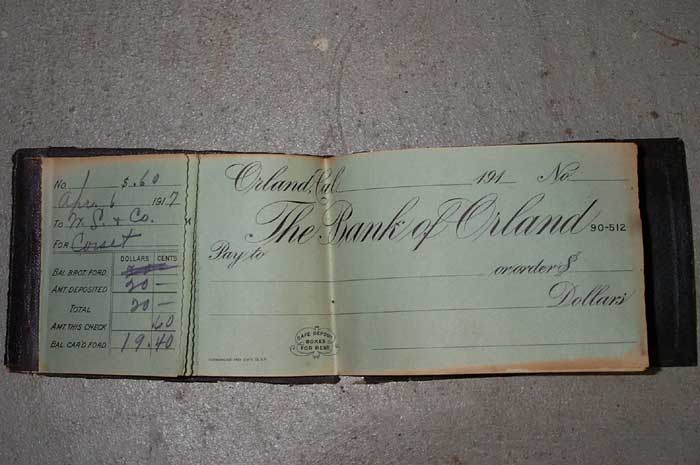 No. 1 $.60
Apr. 6 1917
To W. S. & Co.
For Corset
DOLLARS CENTS
BAL BROT. FORD.
AMT. DEPOSITED 20 —
TOTAL 20 —
AMT. THIS CHECK .60
BAL CAR'D FORD. 19.40
Orland, Cal. 191 No.
The Bank of Orland 90-512
Pay to
or order $
Dollars
SAFE DEPOSIT
BOXES
FOR RENT